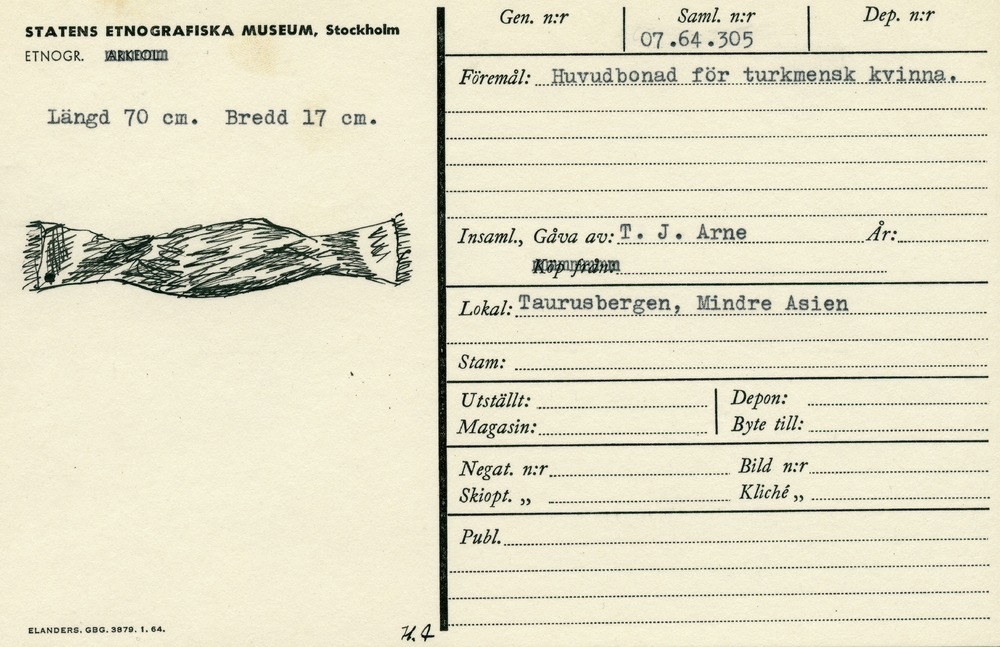 STATENS ETNOGRAFISKA MUSEUM, Stockholm
ETNOGR. ARKEOL.
Längd 70 cm. Bredd 17 cm.
ELANDERS. GBG. 3879. 1. 64.
Gen. n:r Saml. n:r Dep. n:r
07.64.305
Föremål: Huvudbonad för turkmensk kvinna.
Insaml., Gåva av: T. J. Arne År:
Köp från:
Lokal: Taurusbergen, Mindre Asien
Stam:
Utställt: Depon:
Magasin: Byte till:
Negat. n:r Bild n:r
Skiopt. „ Kliché „
Publ.